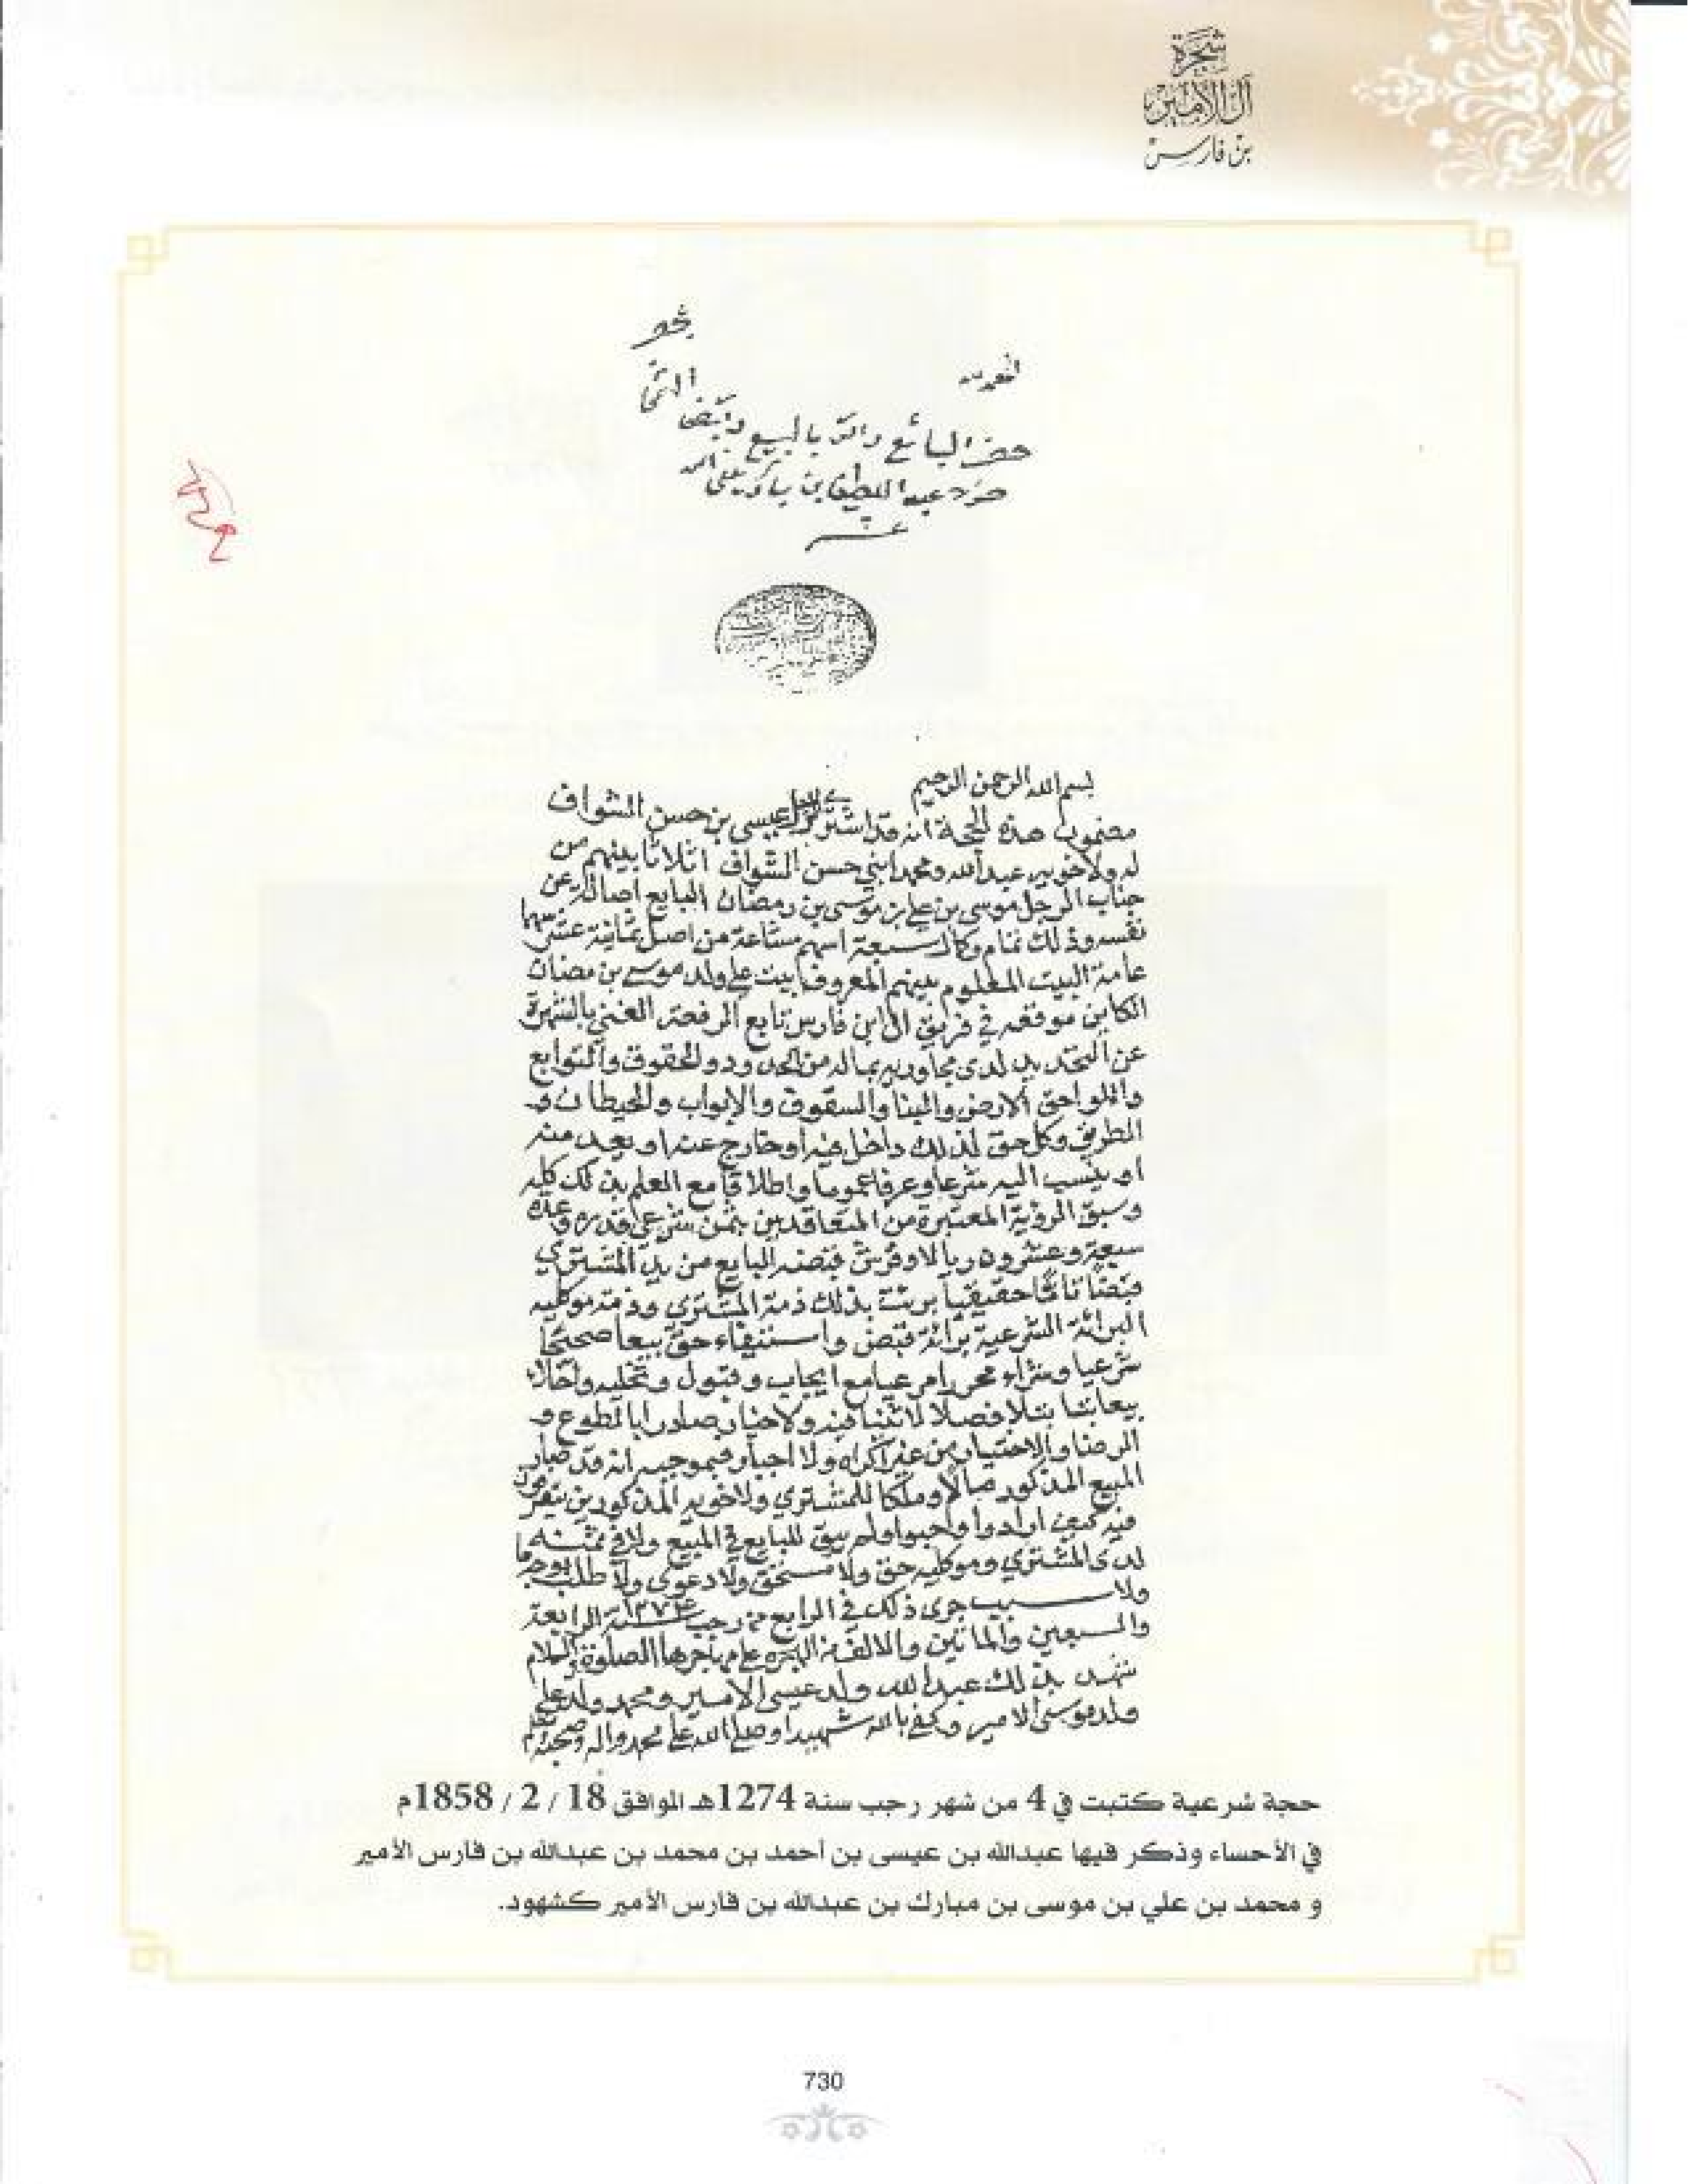 شجرة
آل الأمير
بن فارس
حضر البائع واقر بالبيع وقبض الثمن
حرره عبد اللطيف بن
بسم الله الرحمن الرحيم
مضمون هذه الحجة انه قد اشترى الرجل عيسى بن حسن الشواف
له ولاخويه عبدالله ومحمد ابني حسن الشواف اثلاثا بينهم من
جناب الرجل موسى بن علي بن موسى بن رمضان البايع اصالة عن
نفسه وذلك تمام وكمال سبعة اسهم مشاعة من اصل ثمانية عشر سهما
عامة البيت المعلوم بينهم المعروف ببيت علي ولد موسى بن رمضان
الكاين موقعه في فريق ال ابن فارس تابع الرفعة الغني بالشهرة
عن التحديد لدى مجاوريه بماله من الحدود والحقوق والتوابع
واللواحق الارض والبنا والسقوف والابواب والحيطان و
الطريق وكل حق لذلك داخل فيه او خارج عنه او يعد منه
او ينسب اليه شرعا وعرفا عموما واطلاقا مع العلم بذلك كله
وسبق الرؤية المعتبرة من المتعاقدين بثمن شرعي قدره وعده
سبعة وعشرون ريالا فرنق قبضه البايع من يد المشتري
قبضا تاما حقيقيا برئت بذلك ذمة المشتري وذمة موكليه
البرائة الشرعية برائة قبض واستيفاء حق بيعا صحيحا
شرعيا وشراء محررا مرعيا مع ايجاب وقبول وتخليه واخلاء
بيعا بتا بتلا فصلا لا ثنيا فيه ولا خيار صادرا بالطوع و
الرضا والاختيار من غير اكراه ولا اجبار فبموجبه انه قد صار
المبيع المذكور مالا وملكا للمشتري ولاخويه المذكورين يتصرفون
فيه كيف ارادوا واحبوا ولم يبق للبايع في المبيع ولا في ثمنه
لدى المشتري وموكليه حق ولا مستحق ولا دعوى ولا طلب بوجه ما
ولا سبب جرى ذلك في الرابع من رجب سنة ١٢٧٤ الرابعة
والسبعين والمائتين والالف من الهجرة على مهاجرها الصلوة والسلام
شهد بذلك عبدالله ولد عيسى الامير ومحمد ولد علي
ولد موسى الامير وكفى بالله شهيدا وصلى الله على محمد واله وصحبه وسلم
حجة شرعية كتبت في 4 من شهر رجب سنة 1274هـ الموافق 18 / 2 / 1858م
في الأحساء وذكر فيها عبدالله بن عيسى بن أحمد بن محمد بن عبدالله بن فارس الأمير
و محمد بن علي بن موسى بن مبارك بن عبدالله بن فارس الأمير كشهود.
730